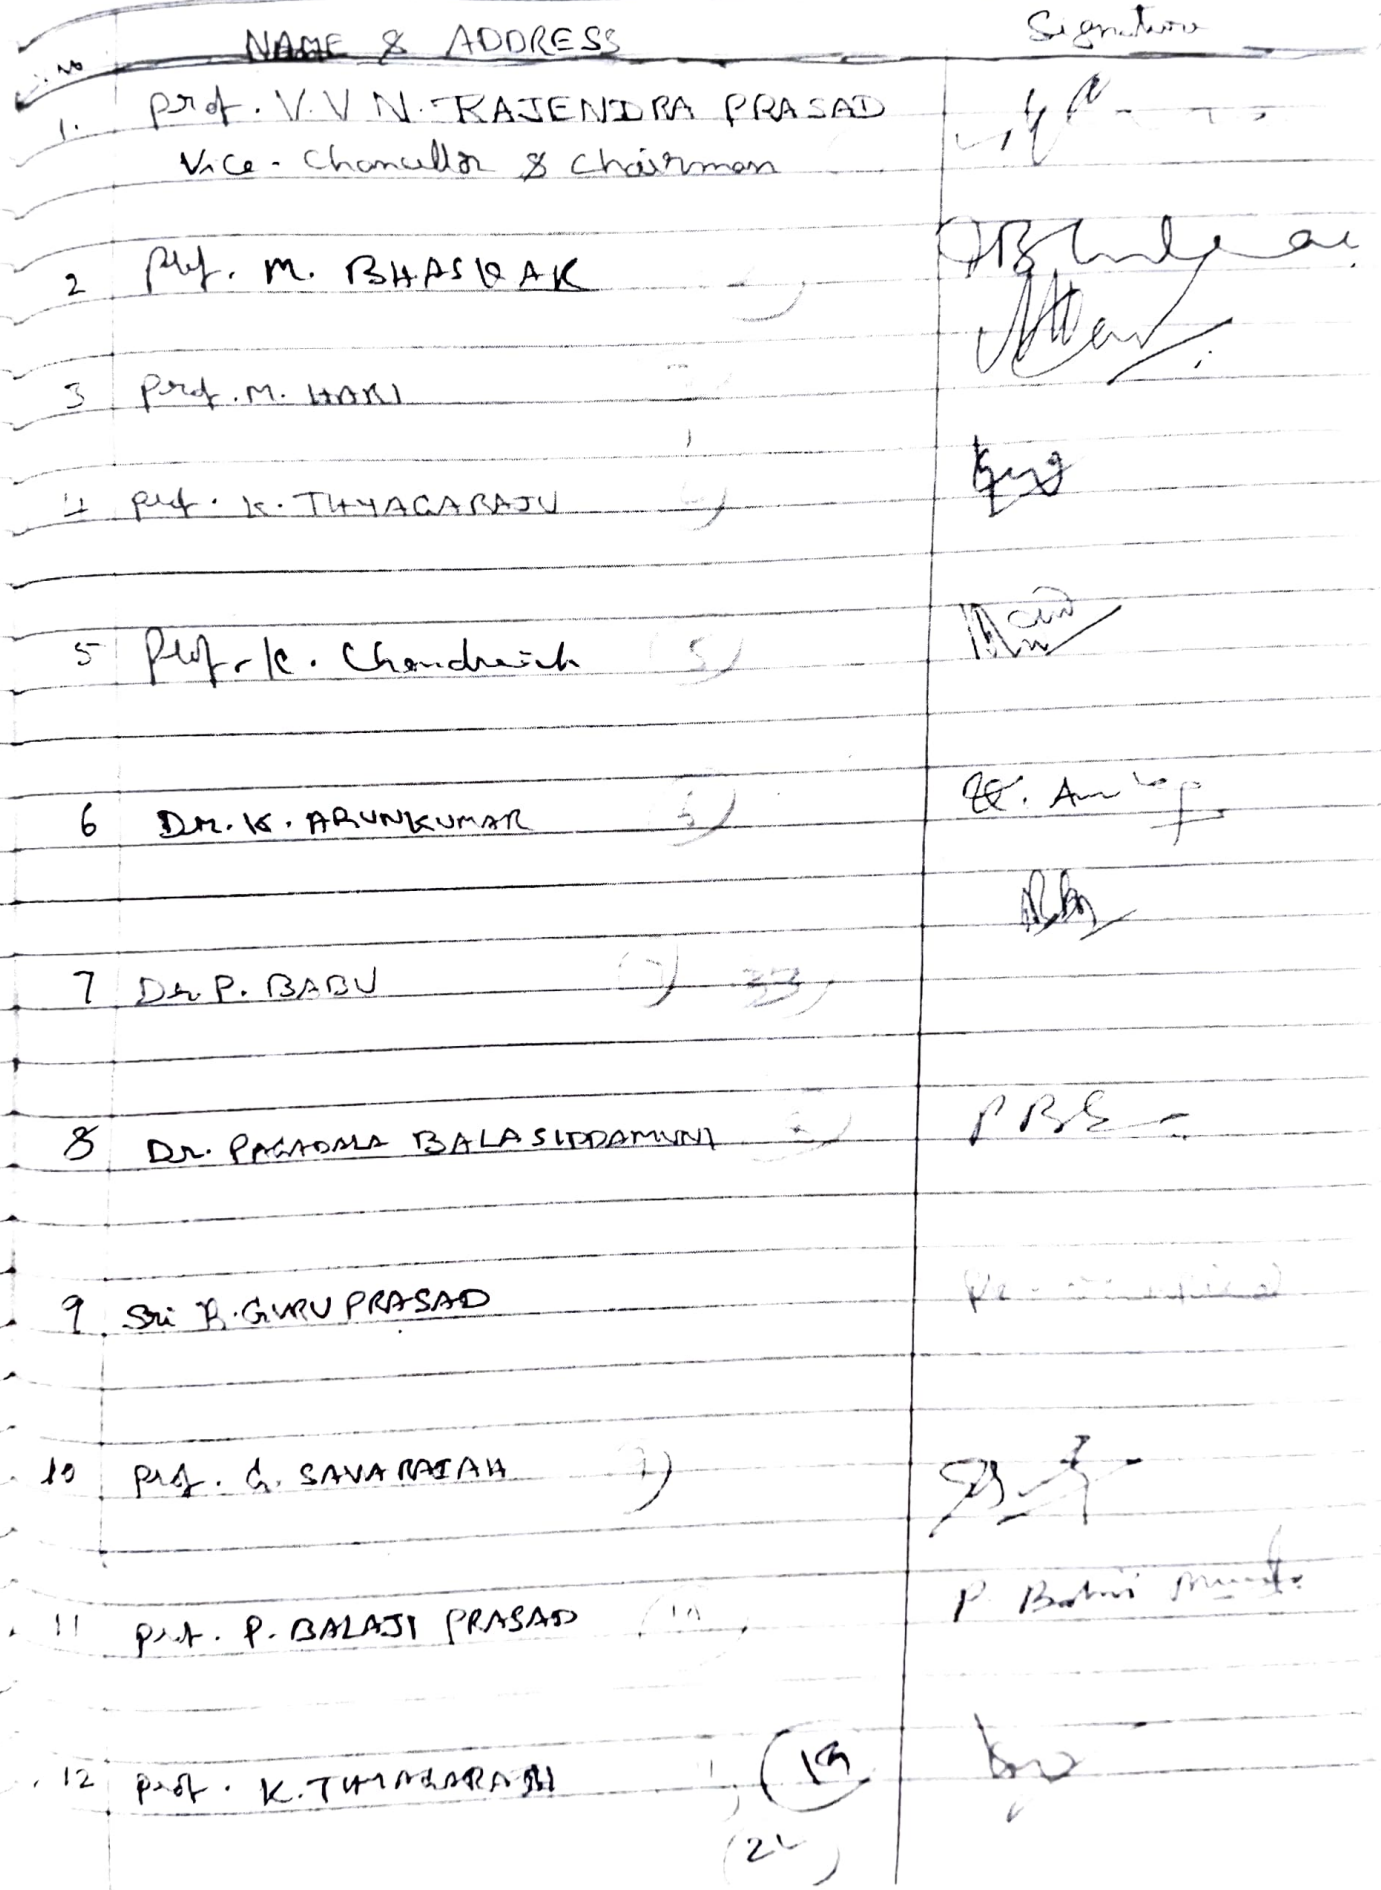 S.No NAME & ADDRESS Signature
1. Prof. V.V.N. RAJENDRA PRASAD
Vice-Chancellor & Chairman
2 Prof. M. BHASKAR
3 Prof. M. HARI
4 Prof. K. THYAGARAJU
5 Prof. K. Chandraiah (5)
6 Dr. K. ARUNKUMAR
7 Dr P. BABU (7) 33
8 Dr. PAGADALA BALASIDDAMUNI PBS
9. Sri R. GURU PRASAD
10 Prof. G. SAVARAIAH
11 Prof. P. BALAJI PRASAD (10) P. Balaji
12 Prof. K. THYAGARAJU